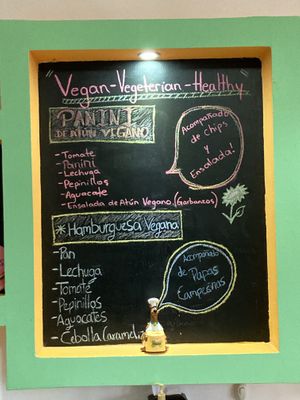 Vegan-Vegeterian-Healthy
PANINI
DE ATÚN VEGANO
Acompañado
de chips
y
Ensalada!
- Tomate
- Panini
- Lechuga
- Pepinillos
- Aguacate
- Ensalada de Atún Vegano. (Garbanzos)
*Hamburguesa Vegana
- Pan
- Lechuga
- Tomate
- Pepinillos
- Aguacates
- Cebolla Carameliz
Acompañado
de Papas
Campesinas